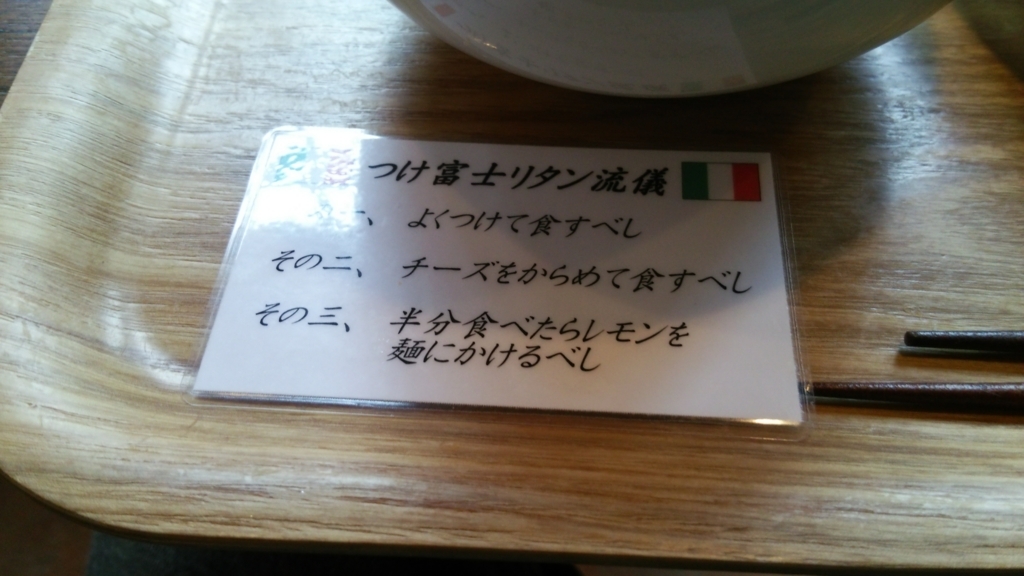 つけ富士リタン流儀
一、 よくつけて食すべし
その二、 チーズをからめて食すべし
その三、 半分食べたらレモンを
麺にかけるべし